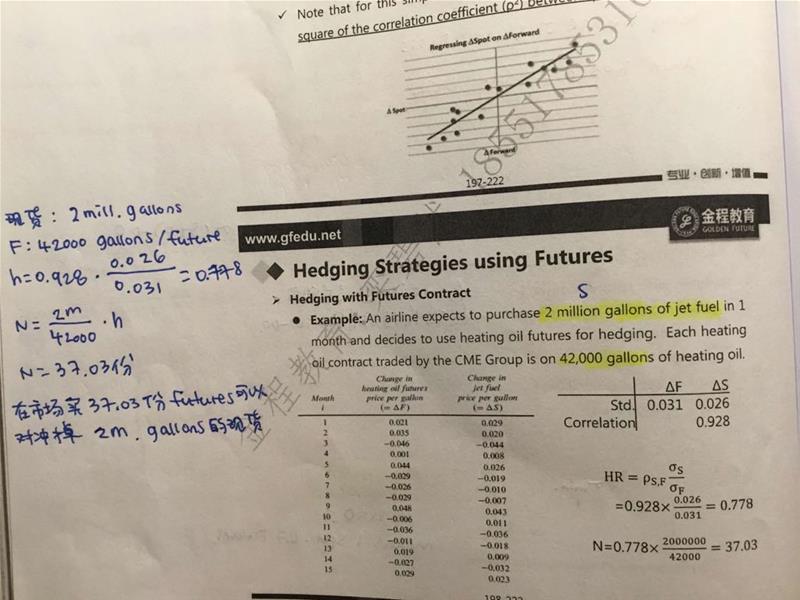 ✓ Note that for this
square of the correlation coefficient (ρ²)
Regressing ΔSpot on ΔForward
Δ Spot
Δ Forward
197-222
专业·创新·增值
18551785310
金程教育
www.gfedu.net
金程教育
GOLDEN FUTURE
Hedging Strategies using Futures
➢ Hedging with Futures Contract
S
● Example: An airline expects to purchase 2 million gallons of jet fuel in 1
month and decides to use heating oil futures for hedging. Each heating
oil contract traded by the CME Group is on 42,000 gallons of heating oil.
现货: 2 mill. gallons
F: 42000 gallons/future
h=0.928 · 0.026/0.031 =0.778
N= 2m/42000 · h
N=37.03份
在市场买37.03份futures可以
对冲掉 2m. gallons的现货
Month i | Change in heating oil futures price per gallon (= ΔF) | Change in jet fuel price per gallon (= ΔS)
1 0.021 0.029
2 0.035 0.020
3 −0.046 −0.044
4 0.001 0.008
5 0.044 0.026
6 −0.029 −0.019
7 −0.026 −0.010
8 −0.029 −0.007
9 0.048 0.043
10 −0.006 0.011
11 −0.036 −0.036
12 −0.011 −0.018
13 0.019 0.009
14 −0.027 −0.032
15 0.029 0.023
ΔF ΔS
Std. 0.031 0.026
Correlation 0.928
HR = ρS,F σS/σF
=0.928× 0.026/0.031 = 0.778
N=0.778× 2000000/42000 = 37.03
198-222